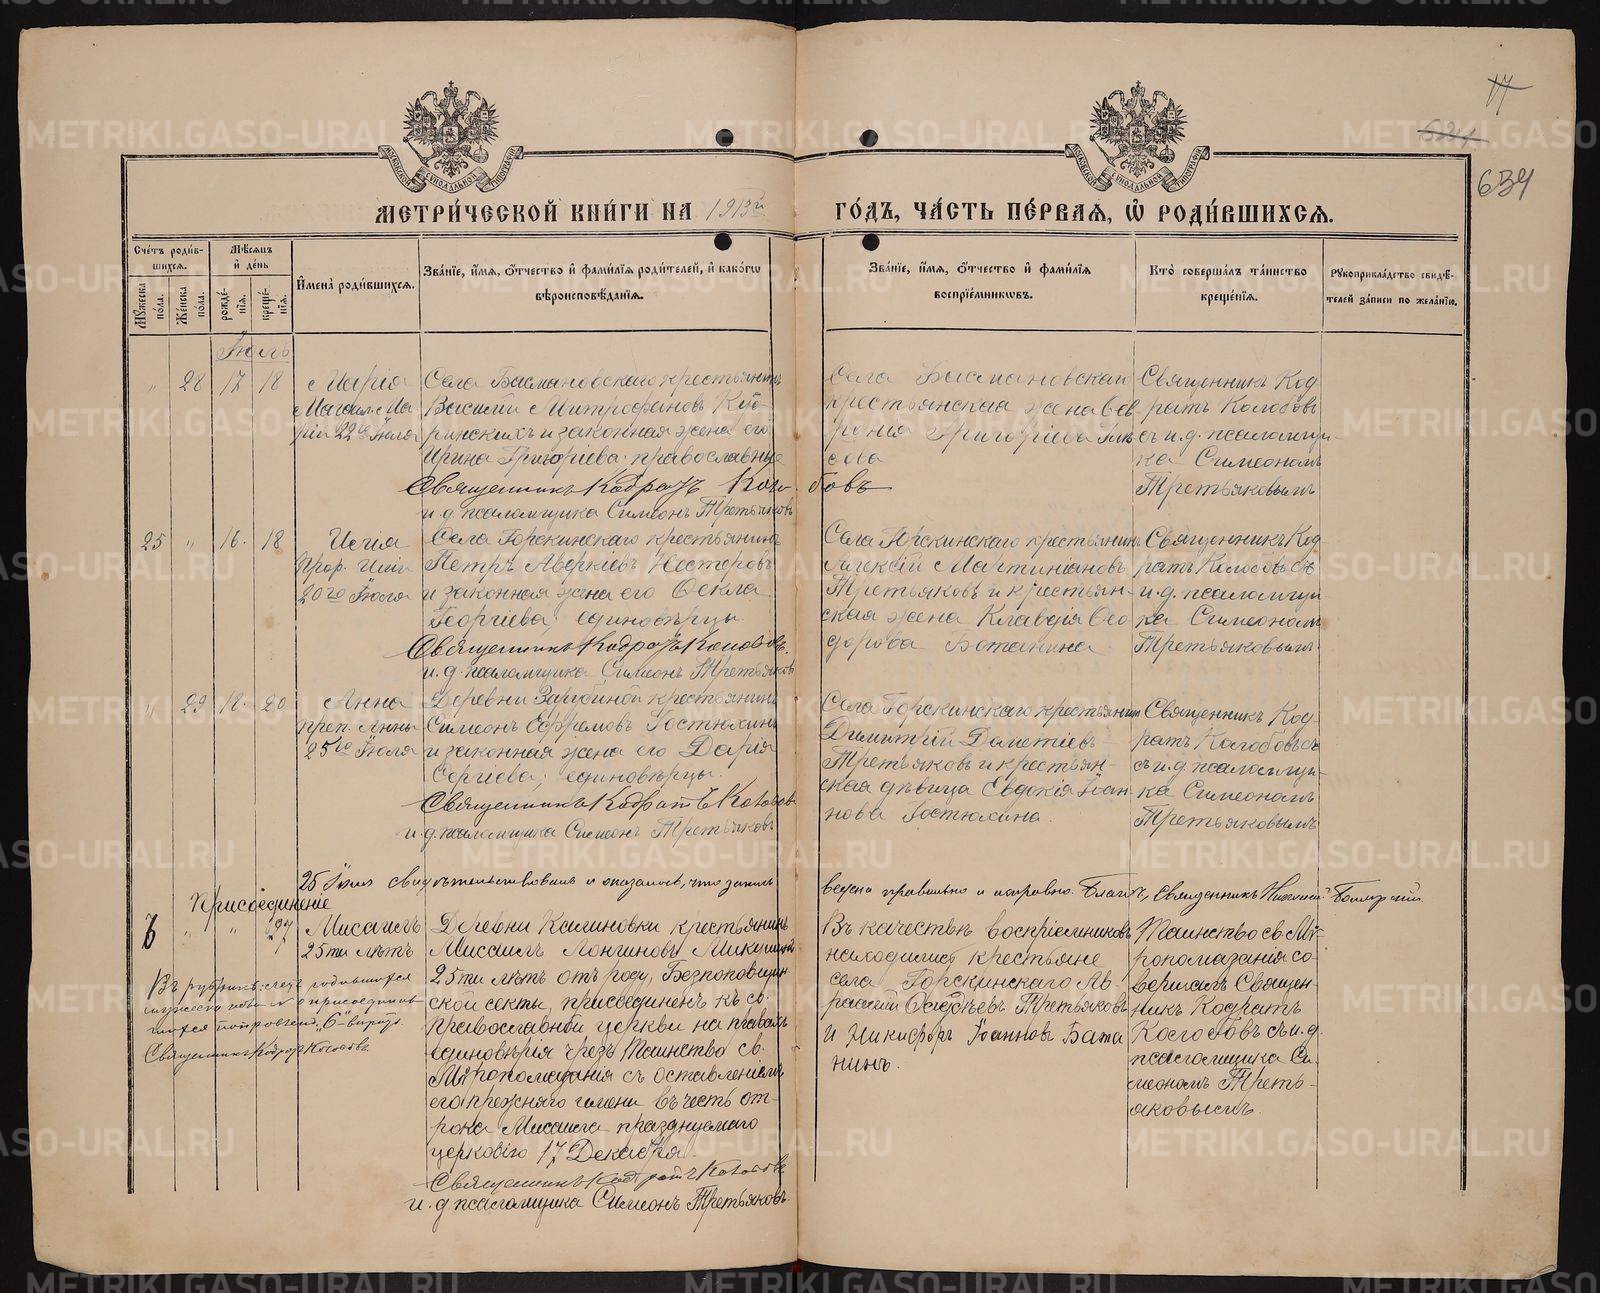 17
634
МОСКОВСКОЙ СѴНОДАЛЬНОЙ ТИПОГРАФІИ
МОСКОВСКОЙ СѴНОДАЛЬНОЙ ТИПОГРАФІИ
МЕТРИ́ЧЕСКОЙ КНИ́ГИ НА 1913й
ГО́ДЪ, ЧА́СТЬ ПЕ́РВАѦ, Ѡ҆ РОДИ́ВШИХСѦ.
Сче́тъ роди́в-
шихсѧ.
Мꙋ́жеска по́ла.
Же́нска по́ла.
Мѣ́сѧцъ
и҆ де́нь
рожде́-
нїѧ.
креще́-
нїѧ.
И҆мена̀ роди́вшихсѧ.
Зва́нїе, и҆́мѧ, ѻ҆́тчество и҆ фами́лїѧ роди́телей, и҆ како́гѡ
вѣроисповѣ́данїѧ.
Зва́нїе, и҆́мѧ, ѻ҆́тчество и҆ фами́лїѧ
воспрїе́мникѡвъ.
Кто̀ соверша́лъ та́инство
креще́нїѧ.
Рꙋкоприкла́дство свидѣ́-
телей за́писи по жела́нїю.
Іюль
" 28 17 18
Марія
Магдал. Ма-
ріи 22го Іюля
Села Басмановскаго крестьянинъ
Василій Митрофановъ
и законная жена его
Ирина Григориева. православные
Священникъ Кодратъ Колобовъ
и.д. псаломщика Симеонъ Третьяковъ
Села Басмановскаго
крестьянская жена Фев
ронія Григоріева
Священникъ Код
ратъ Колобовъ
съ и.д. псаломщи-
ка Симеономъ
Третьяковымъ
25 " 16. 18
Илія
Прор. Иліи
20го Іюля
Села Горскинскаго крестьянинъ
Петръ Аверкіевъ Нестеровъ
и законная жена его Ѳекла
Георгіева, единовѣрцы.
Священникъ Кодратъ Колобовъ.
и.д. псаломщика Симеонъ Третьяковъ
Села Горскинскаго крестьянинъ
Алексій Мартиніановъ
Третьяковъ и крестьян-
ская жена Клавдія Ѳео
дорова Ботанина.
Священникъ Код
ратъ Колобовъ съ
и.д. псаломщи-
ка Симеономъ
Третьяковымъ.
" 29 18. 20
Анна
преп. Анны
25го Іюля
Деревни Зарябиной крестьянинъ
Симеонъ Ефремовъ Костюхинъ
и законная жена его Дарія
Сергіева, единовѣрцы.
Священникъ Кодратъ Колобовъ
и.д. псаломщика Симеонъ Третьяковъ
Села Горскинскаго крестьянинъ
Димитрій Дометіевъ
Третьяковъ и крестьян-
ская дѣвица Евдокія Іоан
нова Костюхина.
Священникъ Код-
ратъ Колобовъ съ
и.д. псаломщи-
ка Симеономъ
Третьяковымъ
25 Іюля свидѣтельствовалъ и оказалось, что запись
ведена правильно и исправно. Благоч., Священникъ
Присоединеніе
" " 27
Мисаилъ
25ти лѣтъ
Деревни Калиновки крестьянинъ
Мисаилъ Лонгиновъ Микушинъ
25ти лѣтъ отъ роду, Безпоповщин
ской секты, присоединенъ къ св.
Православной церкви на правахъ
единовѣрія чрезъ Таинство св.
Мѵропомазанія съ оставленіемъ
его прежняго имени въ честь от-
рока Мисаила празднуемаго
церковію 17 Декабря.
Священникъ Кодратъ Колобовъ
и.д. псаломщика Симеонъ Третьяковъ
Въ качествѣ воспріемниковъ
находились крестьяне
села Горскинскаго Ав-
раамій Третьяковъ
и Никифоръ Іоанновъ Бота
нинъ.
Таинство св. Мѵ-
ропомазанія со-
вершилъ Священ-
никъ Кодратъ
Колобовъ съ и.д.
псаломщика Си-
меономъ Треть-
яковымъ.
Въ рубрикѣ: счетъ родившихся
мужеска пола
Священникъ Кодратъ Колобовъ.
METRIKI.GASO-URAL.RU